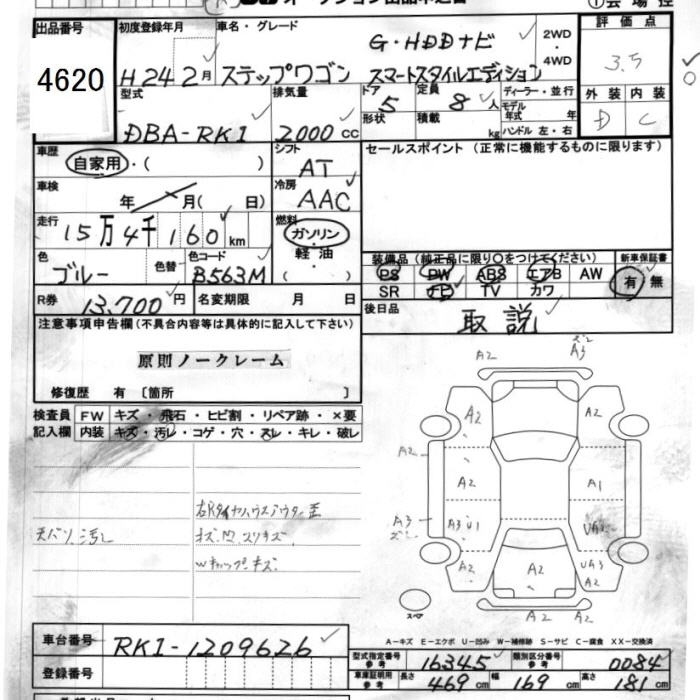 オークション出品申込書
①会場控
出品番号 4620
初度登録年月 H24 2月
車名・グレード G・HDDナビ
ステップワゴン スマートスタイルエディション
2WD・4WD
評価点 3.5
外装 内装
D C
型式 DBA-RK1
排気量 2000cc
ドア 5 形状
定員 8人 積載 kg
ディーラー・並行
モデル年式 年式
ハンドル 左・右
車歴 自家用・( )
シフト AT
セールスポイント (正常に機能するものに限ります)
車検 年 月( 日)
冷房 AAC
走行 15万4千160km
燃料 ガソリン・軽油・( )
色 ブルー 色替 色コード B563M
装備品(純正品に限り○をつけてください)
PS PW ABS エアB AW
SR ナビ TV カワ
新車保証書 有・無
R券 13,700円 名変期限 月 日
後日品 取説
注意事項申告欄(不具合内容等は具体的に記入して下さい)
原則ノークレーム
修復歴 有〔箇所 〕
検査員記入欄
FW キズ・飛石・ヒビ割・リペア跡・×要
内装 キズ・汚レ・コゲ・穴・スレ・キレ・破レ
天バリ汚レ
Wキャップキズ
A2
ズレ
A3
A2
A2
A2
A2
A1
A3
ズレ
A3 U1
UA3
A2
A2
UA3
A2
A2
A2
スペア
A-キズ E-エクボ U-凹み W-補修跡 S-サビ C-腐食 XX-交換済
車台番号 RK1-1209626
登録番号
型式指定番号 参考 16345
類別区分番号 参考 0084
車庫証明用 参考 長さ 469cm 幅 169cm 高さ 181cm